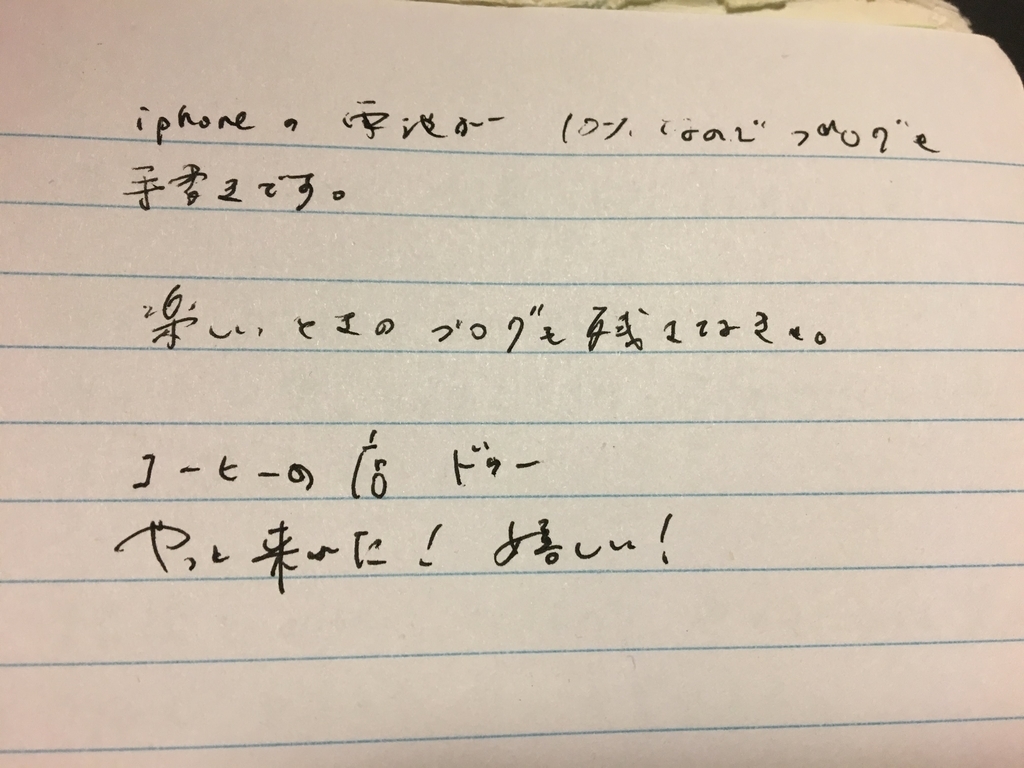 iphoneの電池が 10%なのでブログを
手書きです。
楽しいときのブログを残せてよき。
コーヒーの店 ドゥー
やっと来れた! 嬉しい!